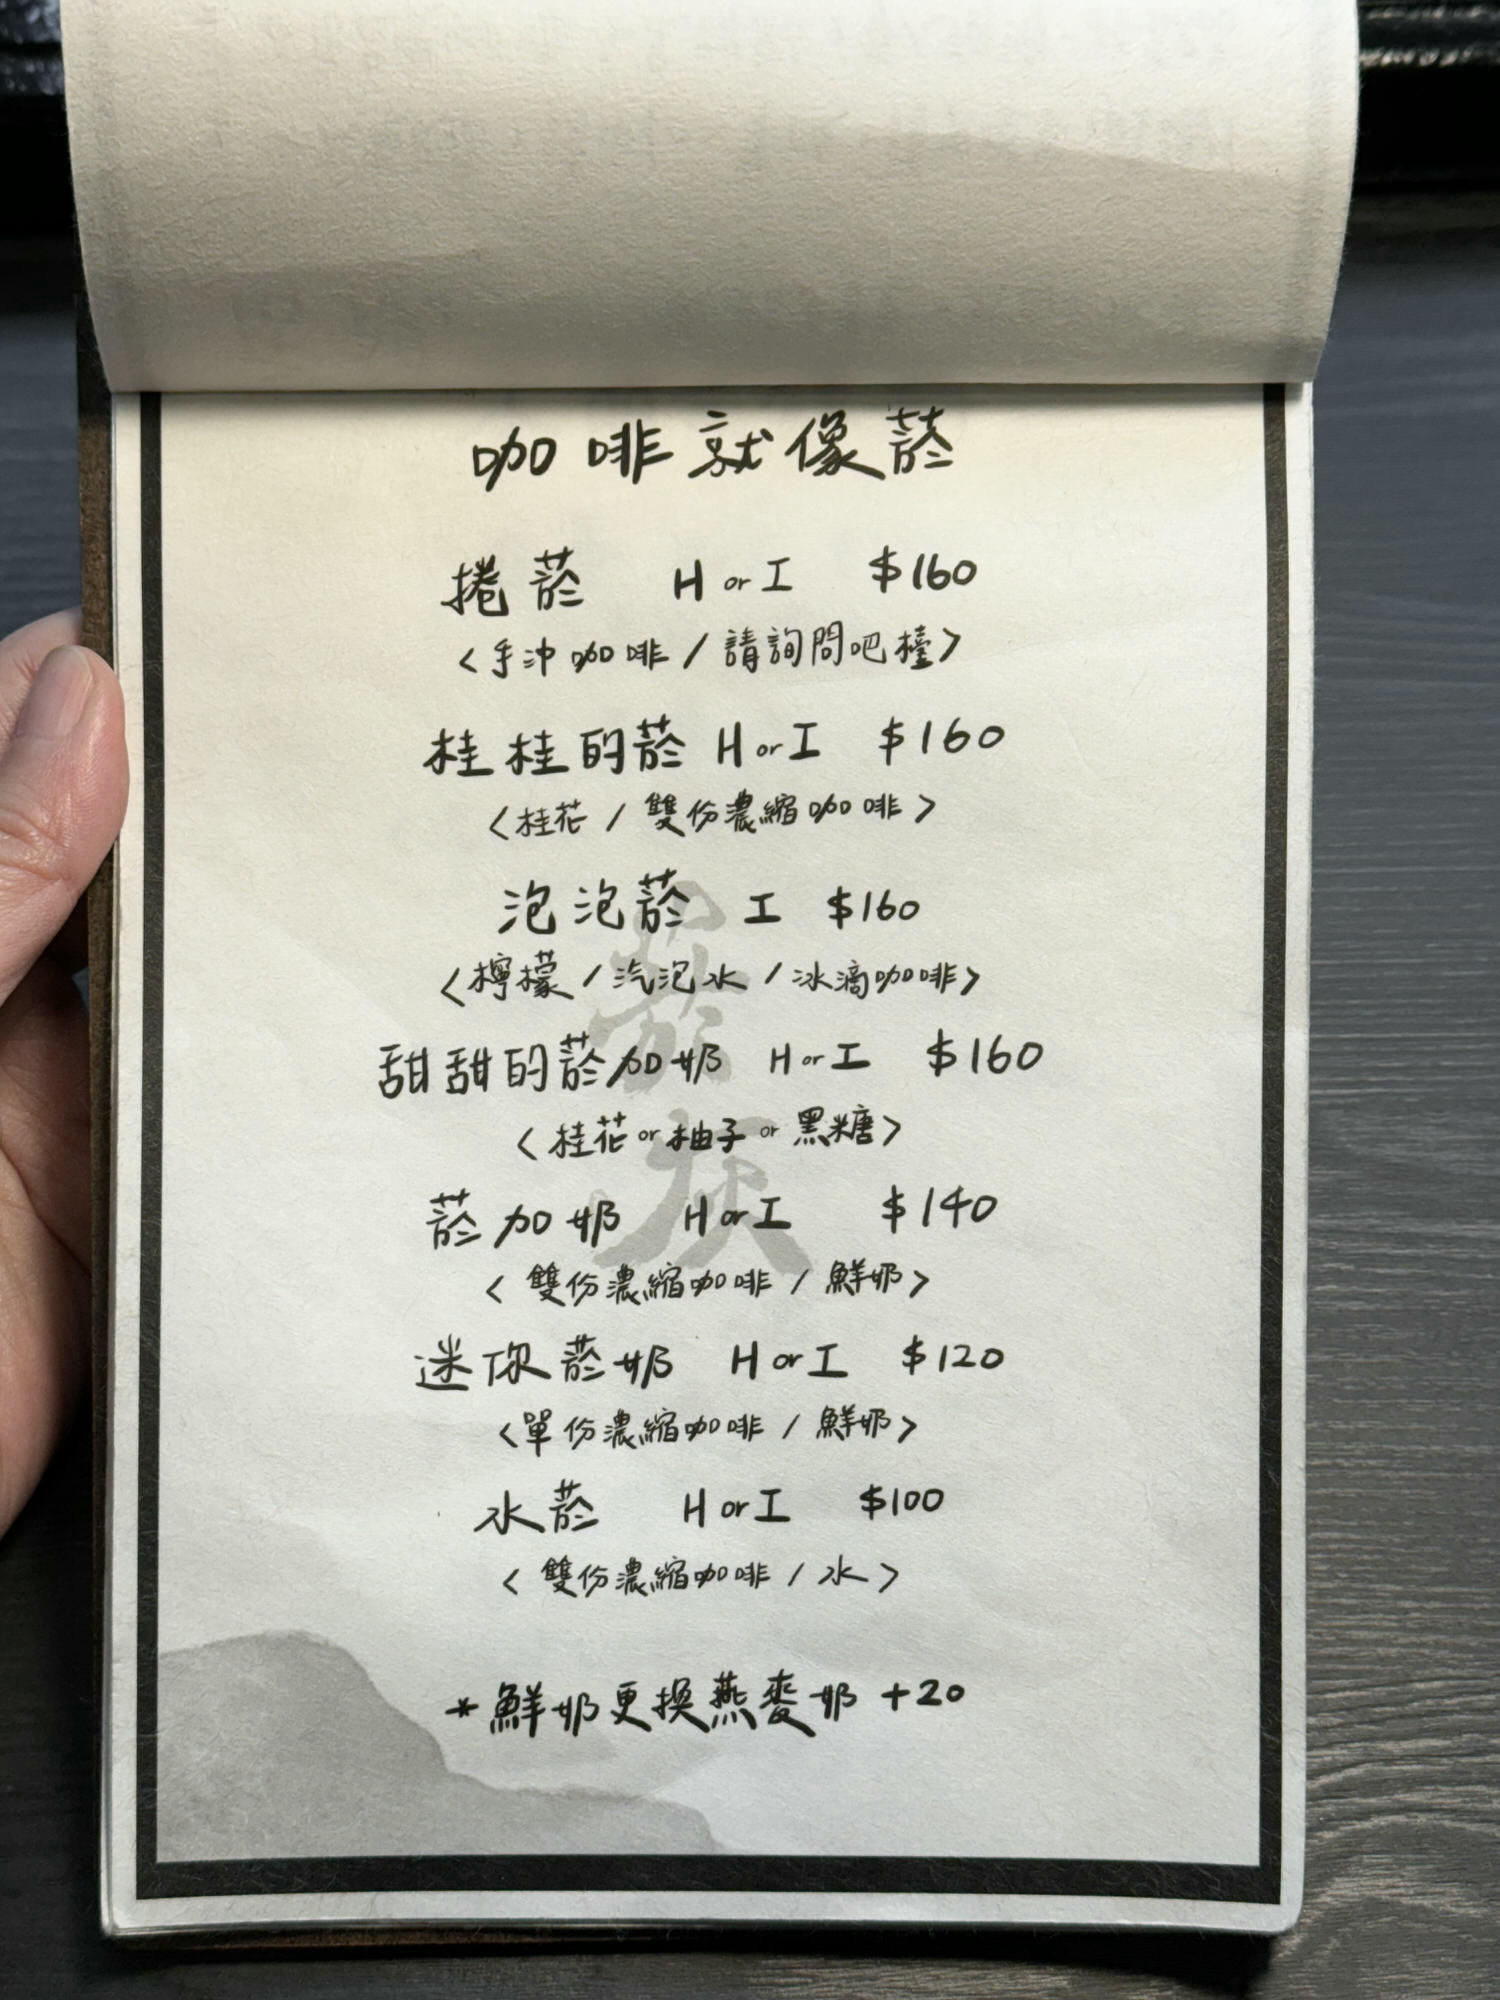 咖啡就像菸
捲菸 H or I $160
<手沖咖啡/請詢問吧檯>
桂桂的菸 H or I $160
<桂花/雙份濃縮咖啡>
泡泡菸 I $160
<檸檬/汽泡水/冰滴咖啡>
甜甜的菸加奶 H or I $160
<桂花 or 柚子 or 黑糖>
菸加奶 H or I $140
<雙份濃縮咖啡/鮮奶>
迷你菸奶 H or I $120
<單份濃縮咖啡/鮮奶>
水菸 H or I $100
<雙份濃縮咖啡/水>
*鮮奶更換燕麥奶 +20